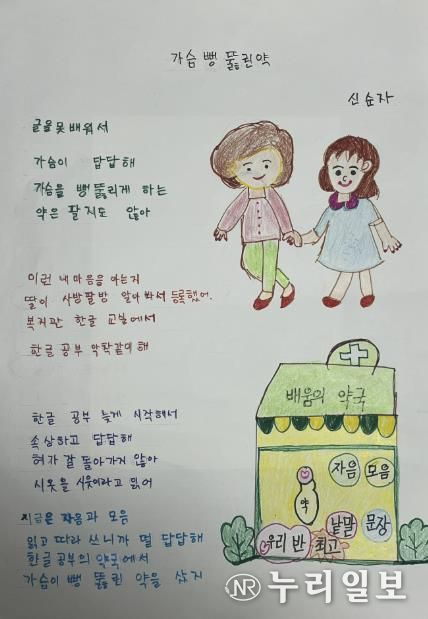 가슴 뻥 뚫린약
신순자
글을 못 배워서
가슴이 답답해
가슴을 뻥 뚫리게 하는
약은 팔지도 않아
이런 내마음을 아는지
딸이 사방팔방 알아봐서 등록했어.
복지관 한글 교실에서
한글 공부 악착같이 해
한글 공부 늦게 시작해서
속상하고 답답해
혀가 잘 돌아가지 않아
시옷을 시옷이라고 읽어
지금은 자음과 모음
읽고 따라 쓰니까 덜 답답해
한글공부의 약국에서
가슴이 뻥 뚫린 약을 샀지
배움의 약국
자음 모음
약
낱말 문장
우리 반 최고
NR 누리일보